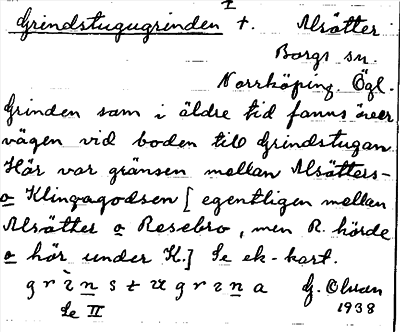 Grindstugugrinden †. Alsätter
Borgs sn.
Norrköping. Ögl.
Grinden som i äldre tid fanns över
vägen vid boden till Grindstugan.
Här var gränsen mellan Alsätters-
o Klingagodsen [egentligen mellan
Alsätter o Resebro, men R. hörde
o hör under K.] Se ek-kart.
grìnstugrɪna G. Olson
Se II 1938